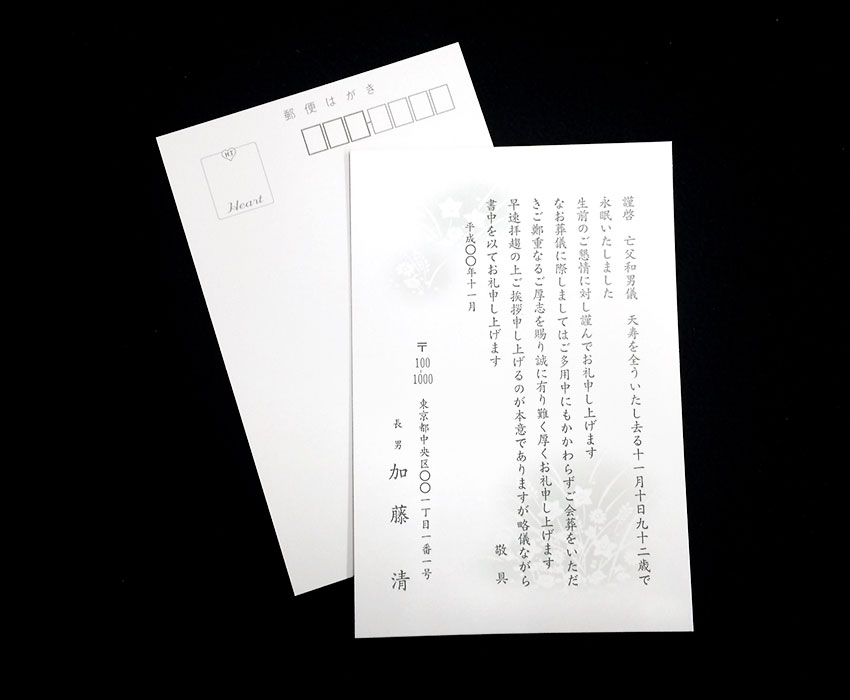 郵便はがき
NI
Heart
謹啓　亡父和男儀　天寿を全ういたし去る十一月十日九十二歳で
永眠いたしました
生前のご懇情に対し謹んでお礼申し上げます
なお葬儀に際しましてはご多用中にもかかわらずご会葬をいただ
きご鄭重なるご厚志を賜り誠に有り難く厚くお礼申し上げます
早速拝趨の上ご挨拶申し上げるのが本意でありますが略儀ながら
書中を以てお礼申し上げます
敬具
平成〇〇年十一月
〒100-1000
東京都中央区〇〇一丁目一番一号
長男　加藤　清